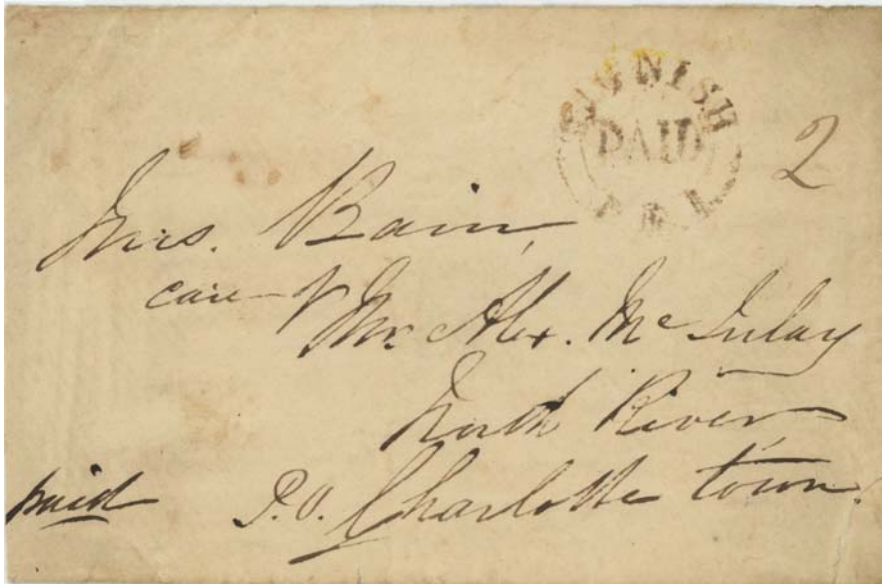 TIGNISH
PAID
P.E.I.
2
Mrs. Bain,
care of
Mr. Alex. Mc Inlay
North River
paid P.O. Charlotte town.